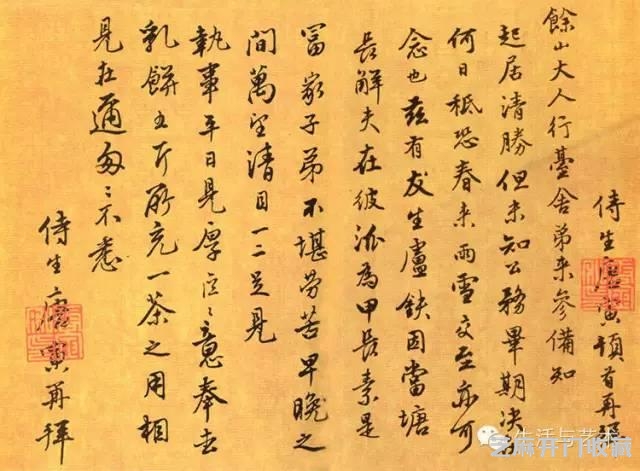 侍生唐寅頓首再拜
餘山大人行臺舍弟來參備知
起居清勝但未知公務畢期決
何日秪恐春來雨雪交至亦可
念也茲有友生盧鈇因當塘
長解夫在彼派為甲長素是
富家子弟不堪勞苦早晚之
間萬望清目一二足見
執事平日見厚區〻意奉去
乳餅五斤所充一茶之用相
見在邇匆〻不悉
侍生唐寅再拜
生活与艺术
芝麻开门收藏